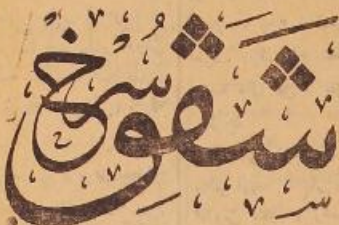 شفق سرخ